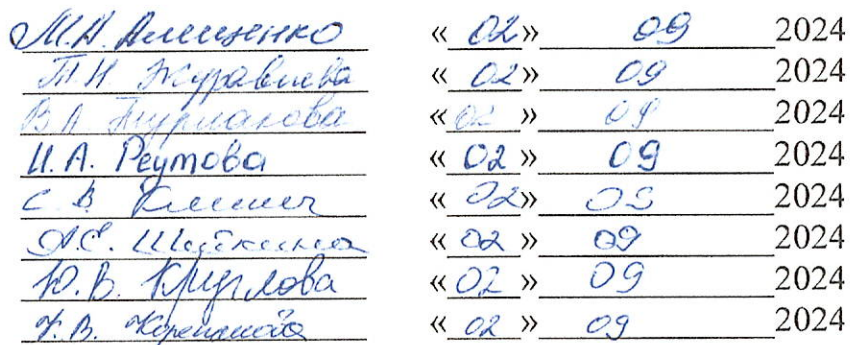 М.А. Алещенко «02» 09 2024
Т.Н Журавлева «02» 09 2024
В А «02» 09 2024
И.А. Реутова «02» 09 2024
С В Климич «02» 09 2024
А.Е. Шуткина «02» 09 2024
Ю.В. Круглова «02» 09 2024
В. Корепанова «02» 09 2024